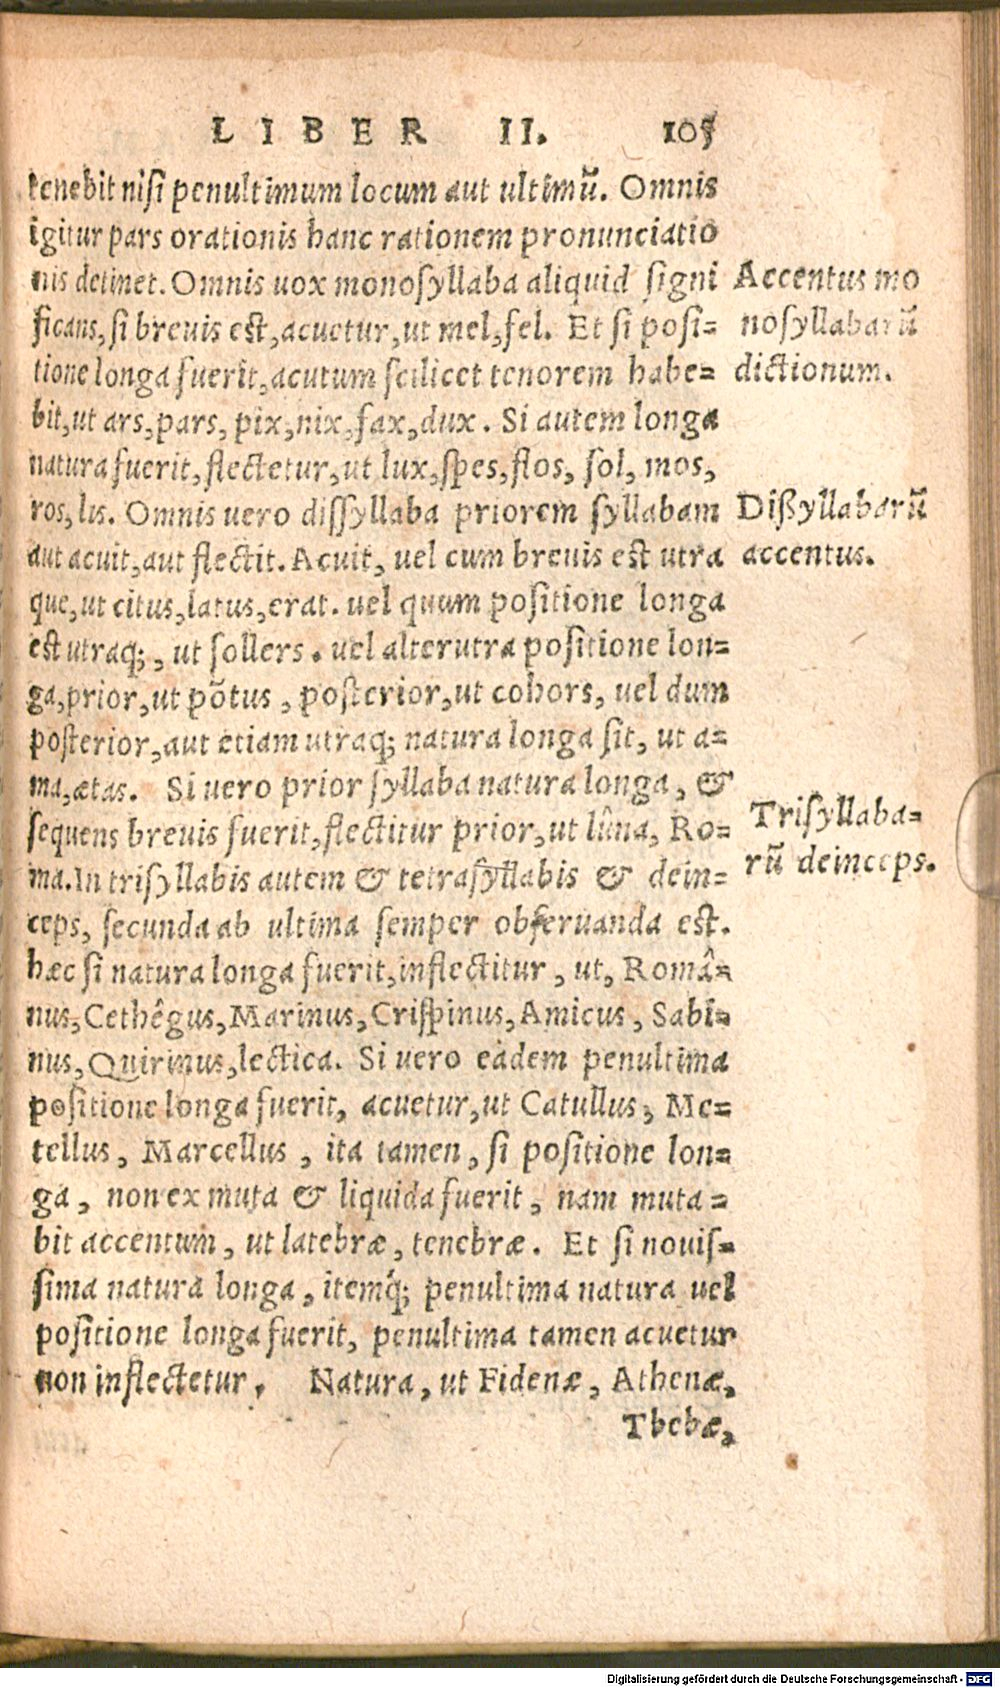 LIBER II. 105
tenebit nisi penultimum locum aut ultimũ. Omnis
igitur pars orationis hanc rationem pronunciatio
nis detinet. Omnis uox monosyllaba aliquid signi
ficans, si breuis est, acuetur, ut mel, fel. Et si posi=
tione longa fuerit, acutum scilicet tenorem habe=
bit, ut ars, pars, pix, nix, fax, dux. Si autem longa
natura fuerit, flectetur, ut lux, spes, flos, sol, mos,
ros, lis. Omnis uero dissyllaba priorem syllabam
aut acuit, aut flectit. Acuit, uel cum breuis est utra
que, ut citus, latus, erat. uel quum positione longa
est utraq;, ut sollers. uel alterutra positione lon=
ga, prior, ut põtus, posterior, ut cohors, uel dum
posterior, aut etiam utraq; natura longa sit, ut a=
ma, ætas. Si uero prior syllaba natura longa, &
sequens breuis fuerit, flectitur prior, ut lûna, Ro=
ma. In trisyllabis autem & tetrasyllabis & dein=
ceps, secunda ab ultima semper obseruanda est.
hæc si natura longa fuerit, inflectitur, ut, Româ=
nus, Cethêgus, Marinus, Crispinus, Amicus, Sabi=
nus, Quirinus, lectica. Si uero eadem penultima
positione longa fuerit, acuetur, ut Catullus, Me=
tellus, Marcellus, ita tamen, si positione lon=
ga, non ex muta & liquida fuerit, nam muta=
bit accentum, ut latebræ, tenebræ. Et si nouis=
sima natura longa, itemq́; penultima natura uel
positione longa fuerit, penultima tamen acuetur
non inflectetur. Natura, ut Fidenæ, Athenæ,
Thebæ,
Accentus mo
nosyllabarũ
dictionum.
Dißyllabarũ
accentus.
Trisyllaba=
rũ deinceps.
Digitalisierung gefördert durch die Deutsche Forschungsgemeinschaft - DFG